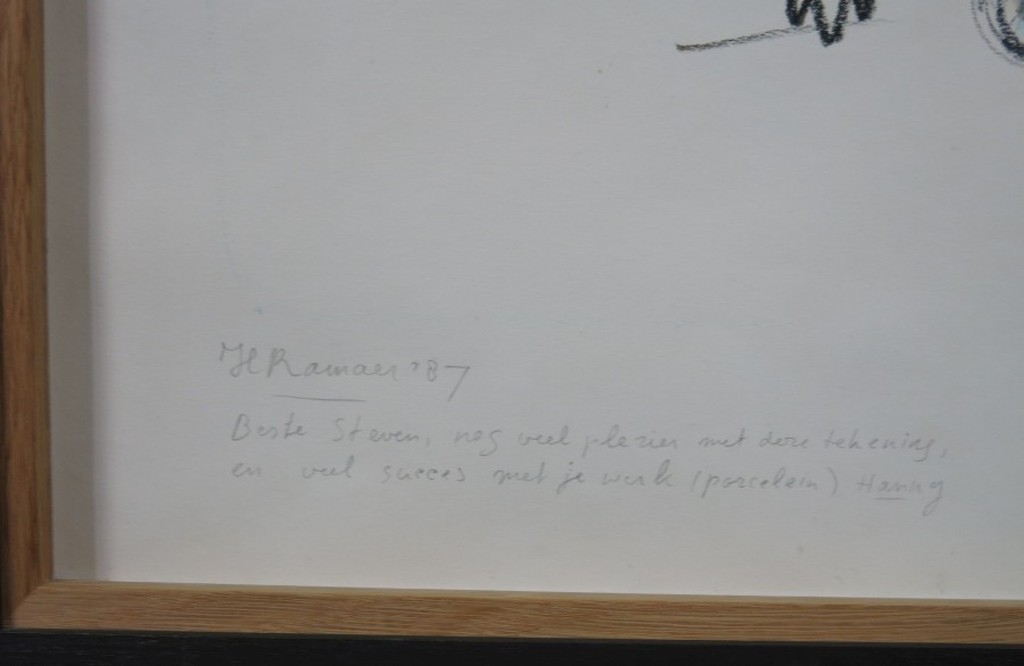 H Ramaer '87
Beste Steven, nog veel plezier met deze tekening,
en veel succes met je werk (porcelein) Hanny